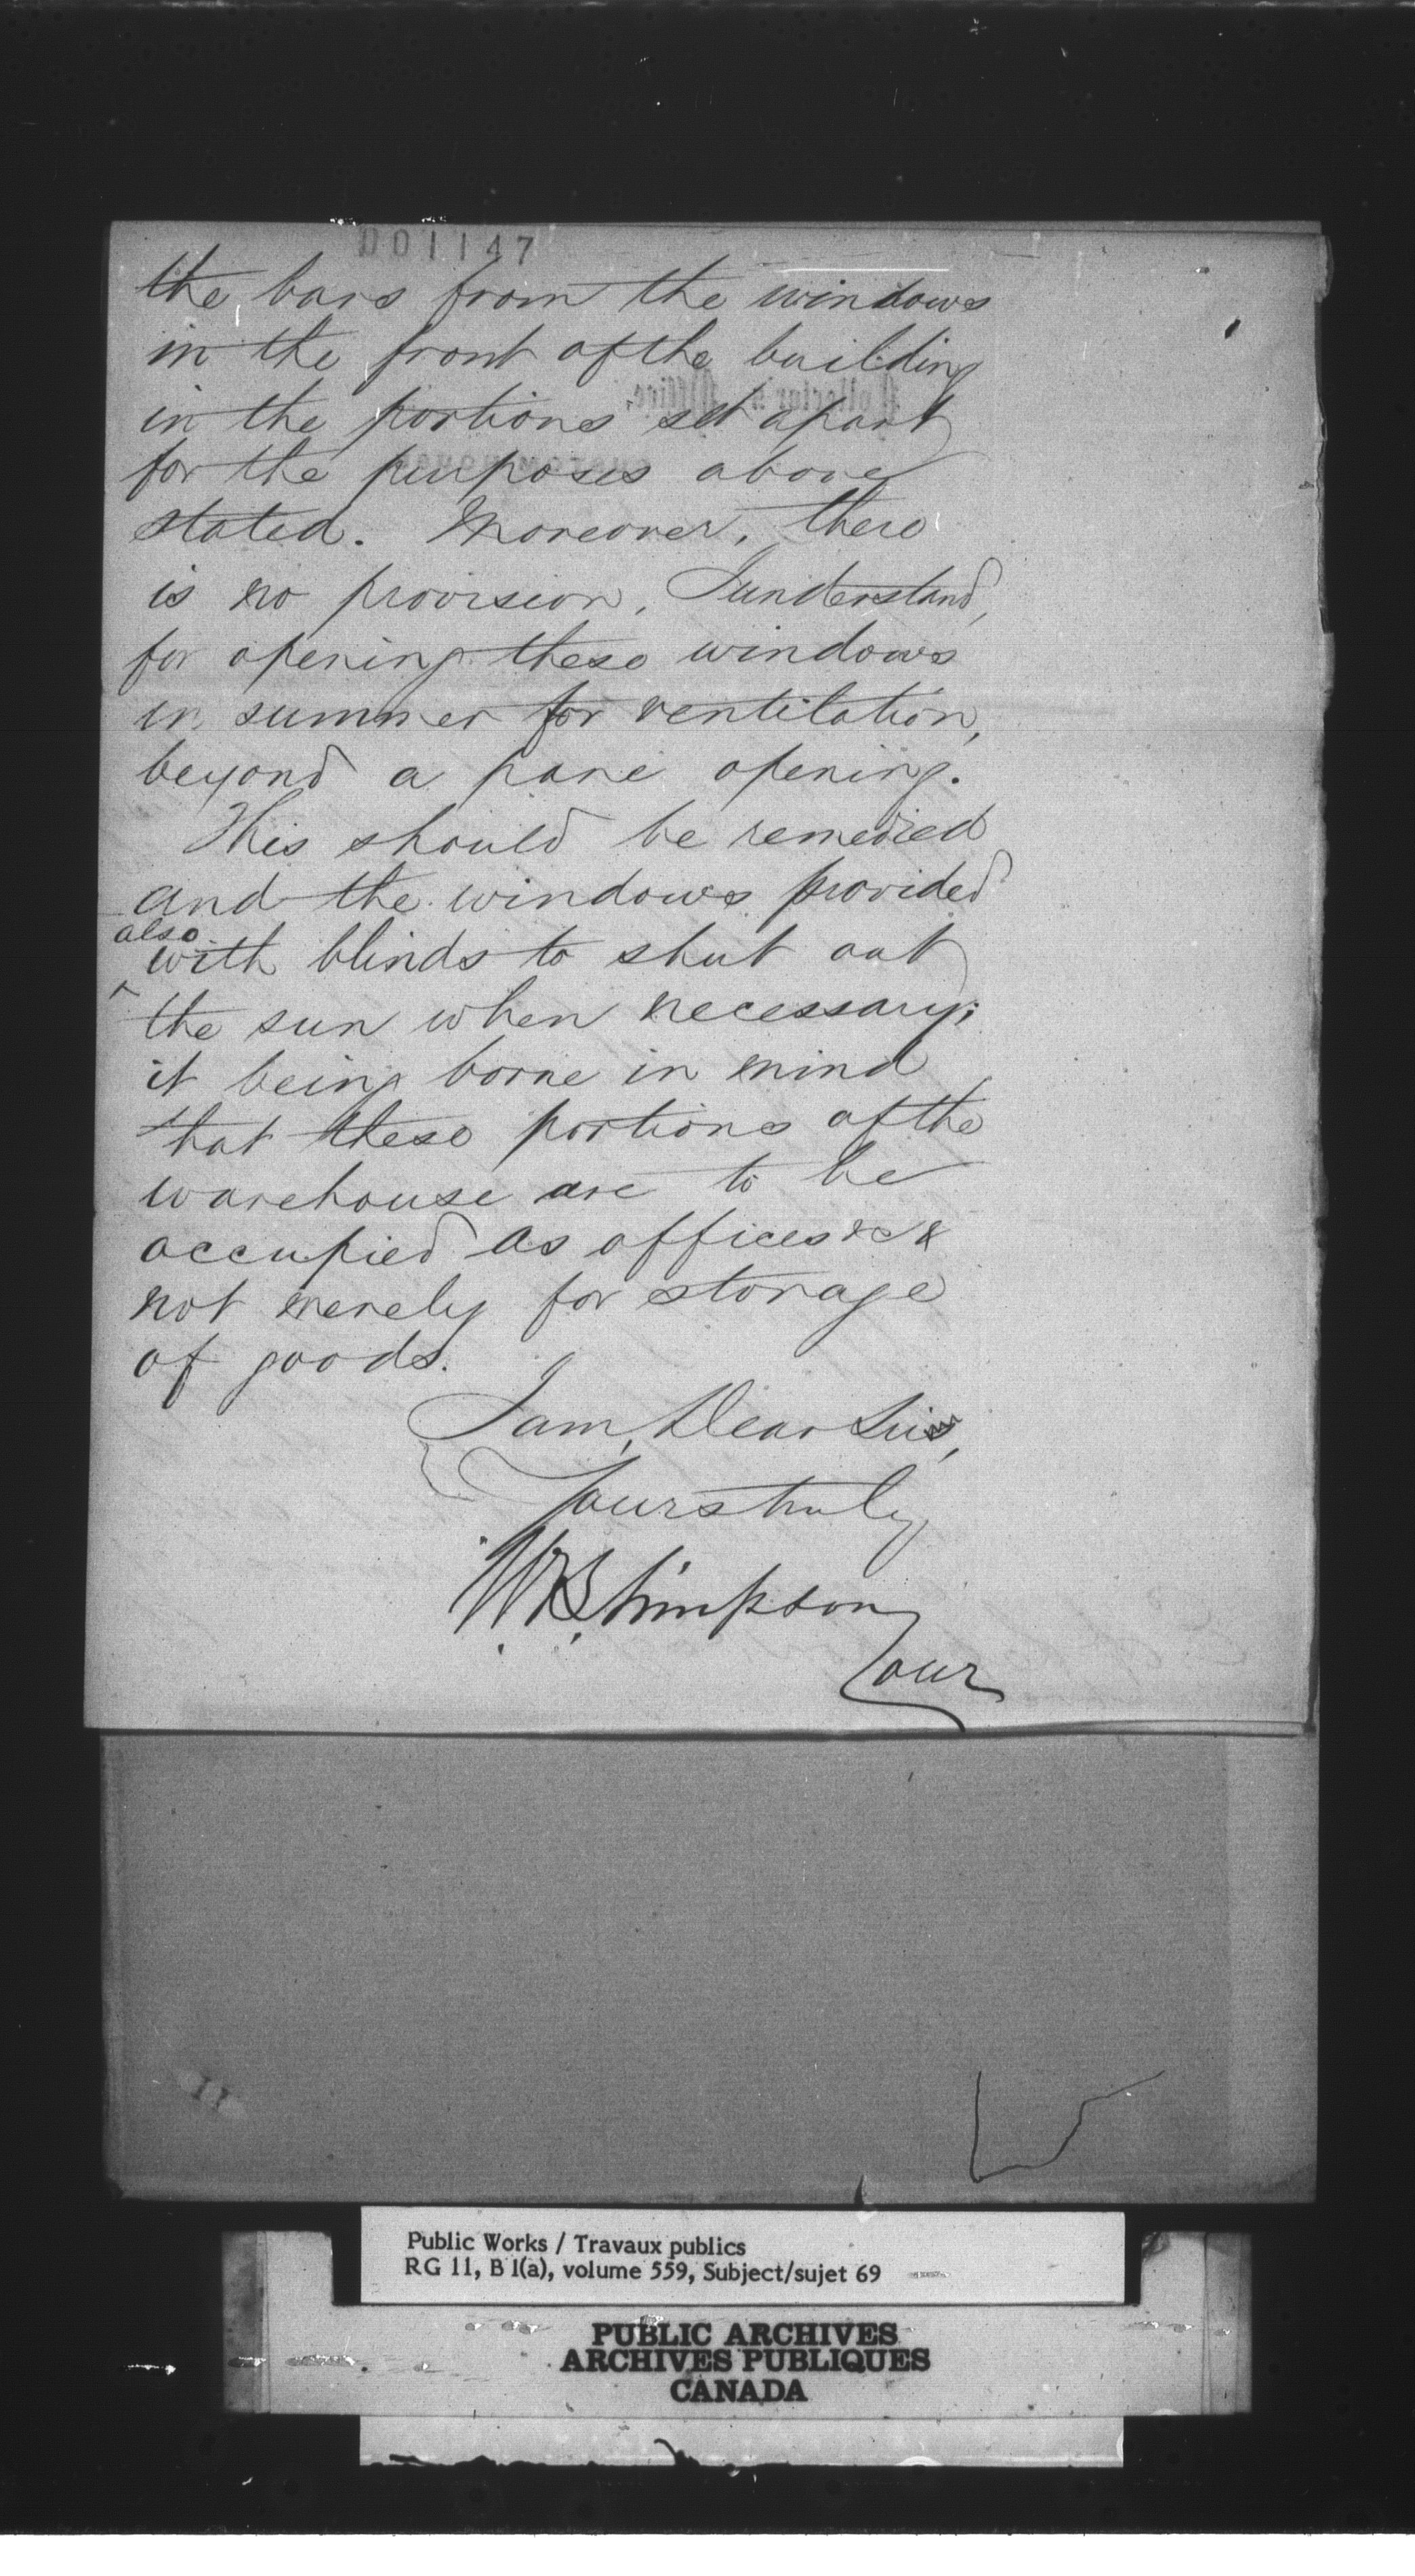 001147
the bars from the windows
in the front of the building
in the portions set apart
for the purposes above
stated. Moreover, there
is no provision, I understand,
for opening these windows
in summer for ventilation,
beyond a pane opening.
This should be remedied
and the windows provided
also
with blinds to shut out
the sun when necessary;
it being borne in mind
that these portions of the
warehouse are to be
occupied as offices &c &
not merely for storage
of goods.
I am, Dear Sir,
Yours truly
W B Simpson
Public Works / Travaux publics
RG 11, B 1(a), volume 559, Subject/sujet 69
PUBLIC ARCHIVES
ARCHIVES PUBLIQUES
CANADA